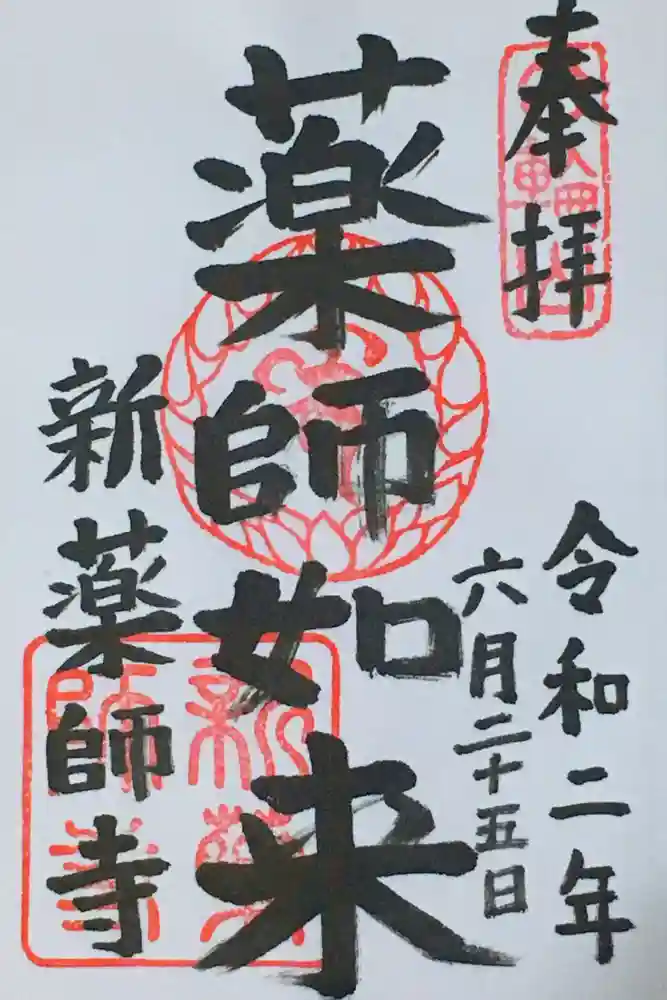 奉拝
令和二年
六月二十五日
薬師如来
新薬師寺